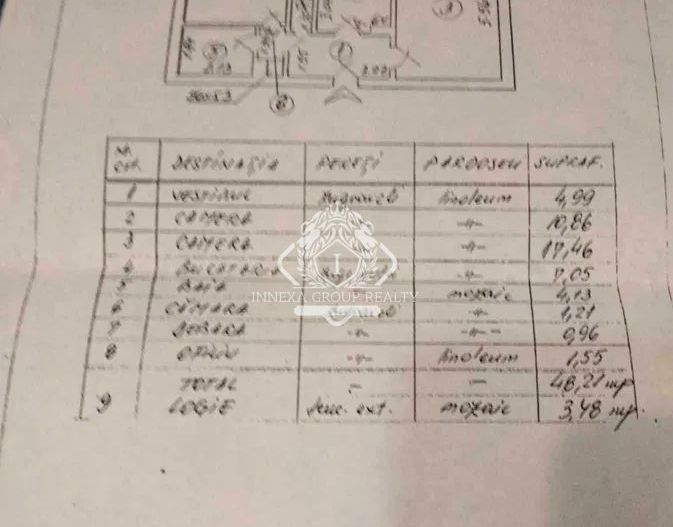 5.96
2.13
1.95
2.02
Nr. crt. DESTINAȚIA PEREȚI PARDOSELI SUPRAF.
1 VESTIBUL linoleum 4,99
2 CAMERA -"- 10,86
3 CAMERA -"- 17,46
4 BUCATARIE -"- 7,05
5 BAIA mozaic 4,13
6 CĂMARA -"- 1,21
7 DEBARA -"- -"- 0,96
8 OFICIU -"- linoleum 1,55
TOTAL - - 48,21 mp
9 LOGIE ext. mozaic 3,48 mp.
INNEXA GROUP REALTY